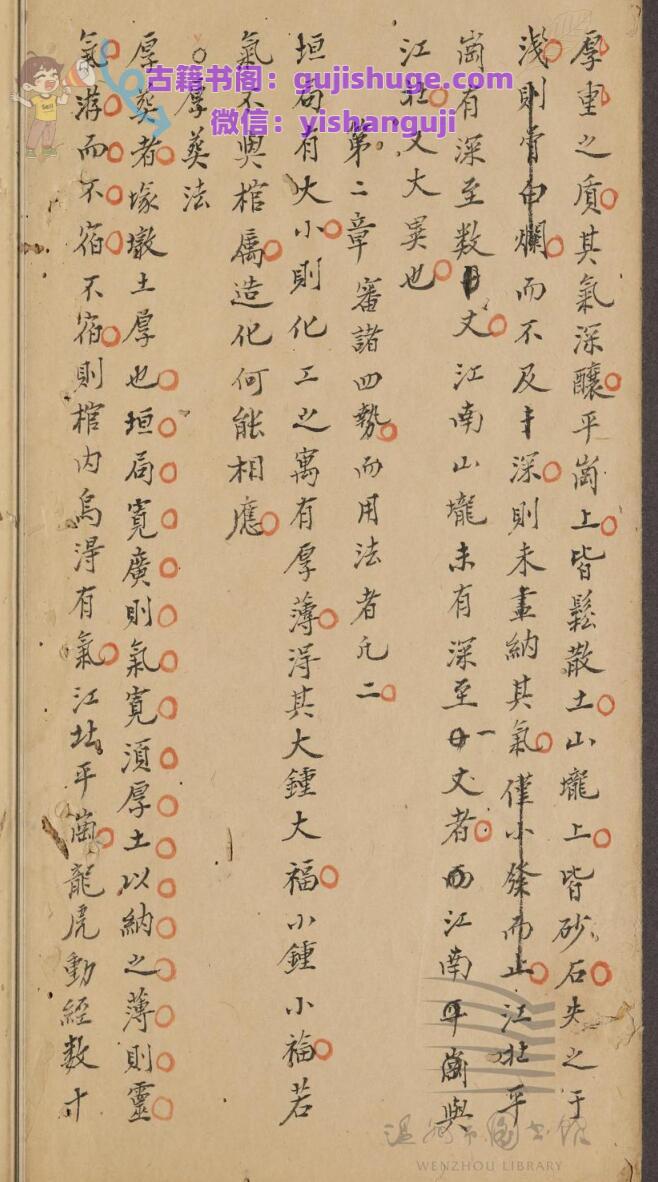 厚重之质其氣深釀平崗上皆鬆散土山壠上皆砂石失之于
淺則骨白爛而不及深則未盡納其氣僅小發而止江北平
崗有深至数丈江南山壠未有深至一丈者而江南平崗與
江北又大異也
第二章 審諸四勢而用法者凡二
垣局有大小則化工之寓有厚薄淂其大鍾大福小鍾小福若
氣不與棺属造化何能相應
厚葵法
厚葵者塚墩土厚也垣局寛廣則氣寛湏厚土以納之薄則靈
氣游而不宿不宿則棺内烏淂有氣江北平崗龍虎動經数十
古籍书阁：gujishuge.com
微信：yishanguji
温州市图书馆
WENZHOU LIBRARY